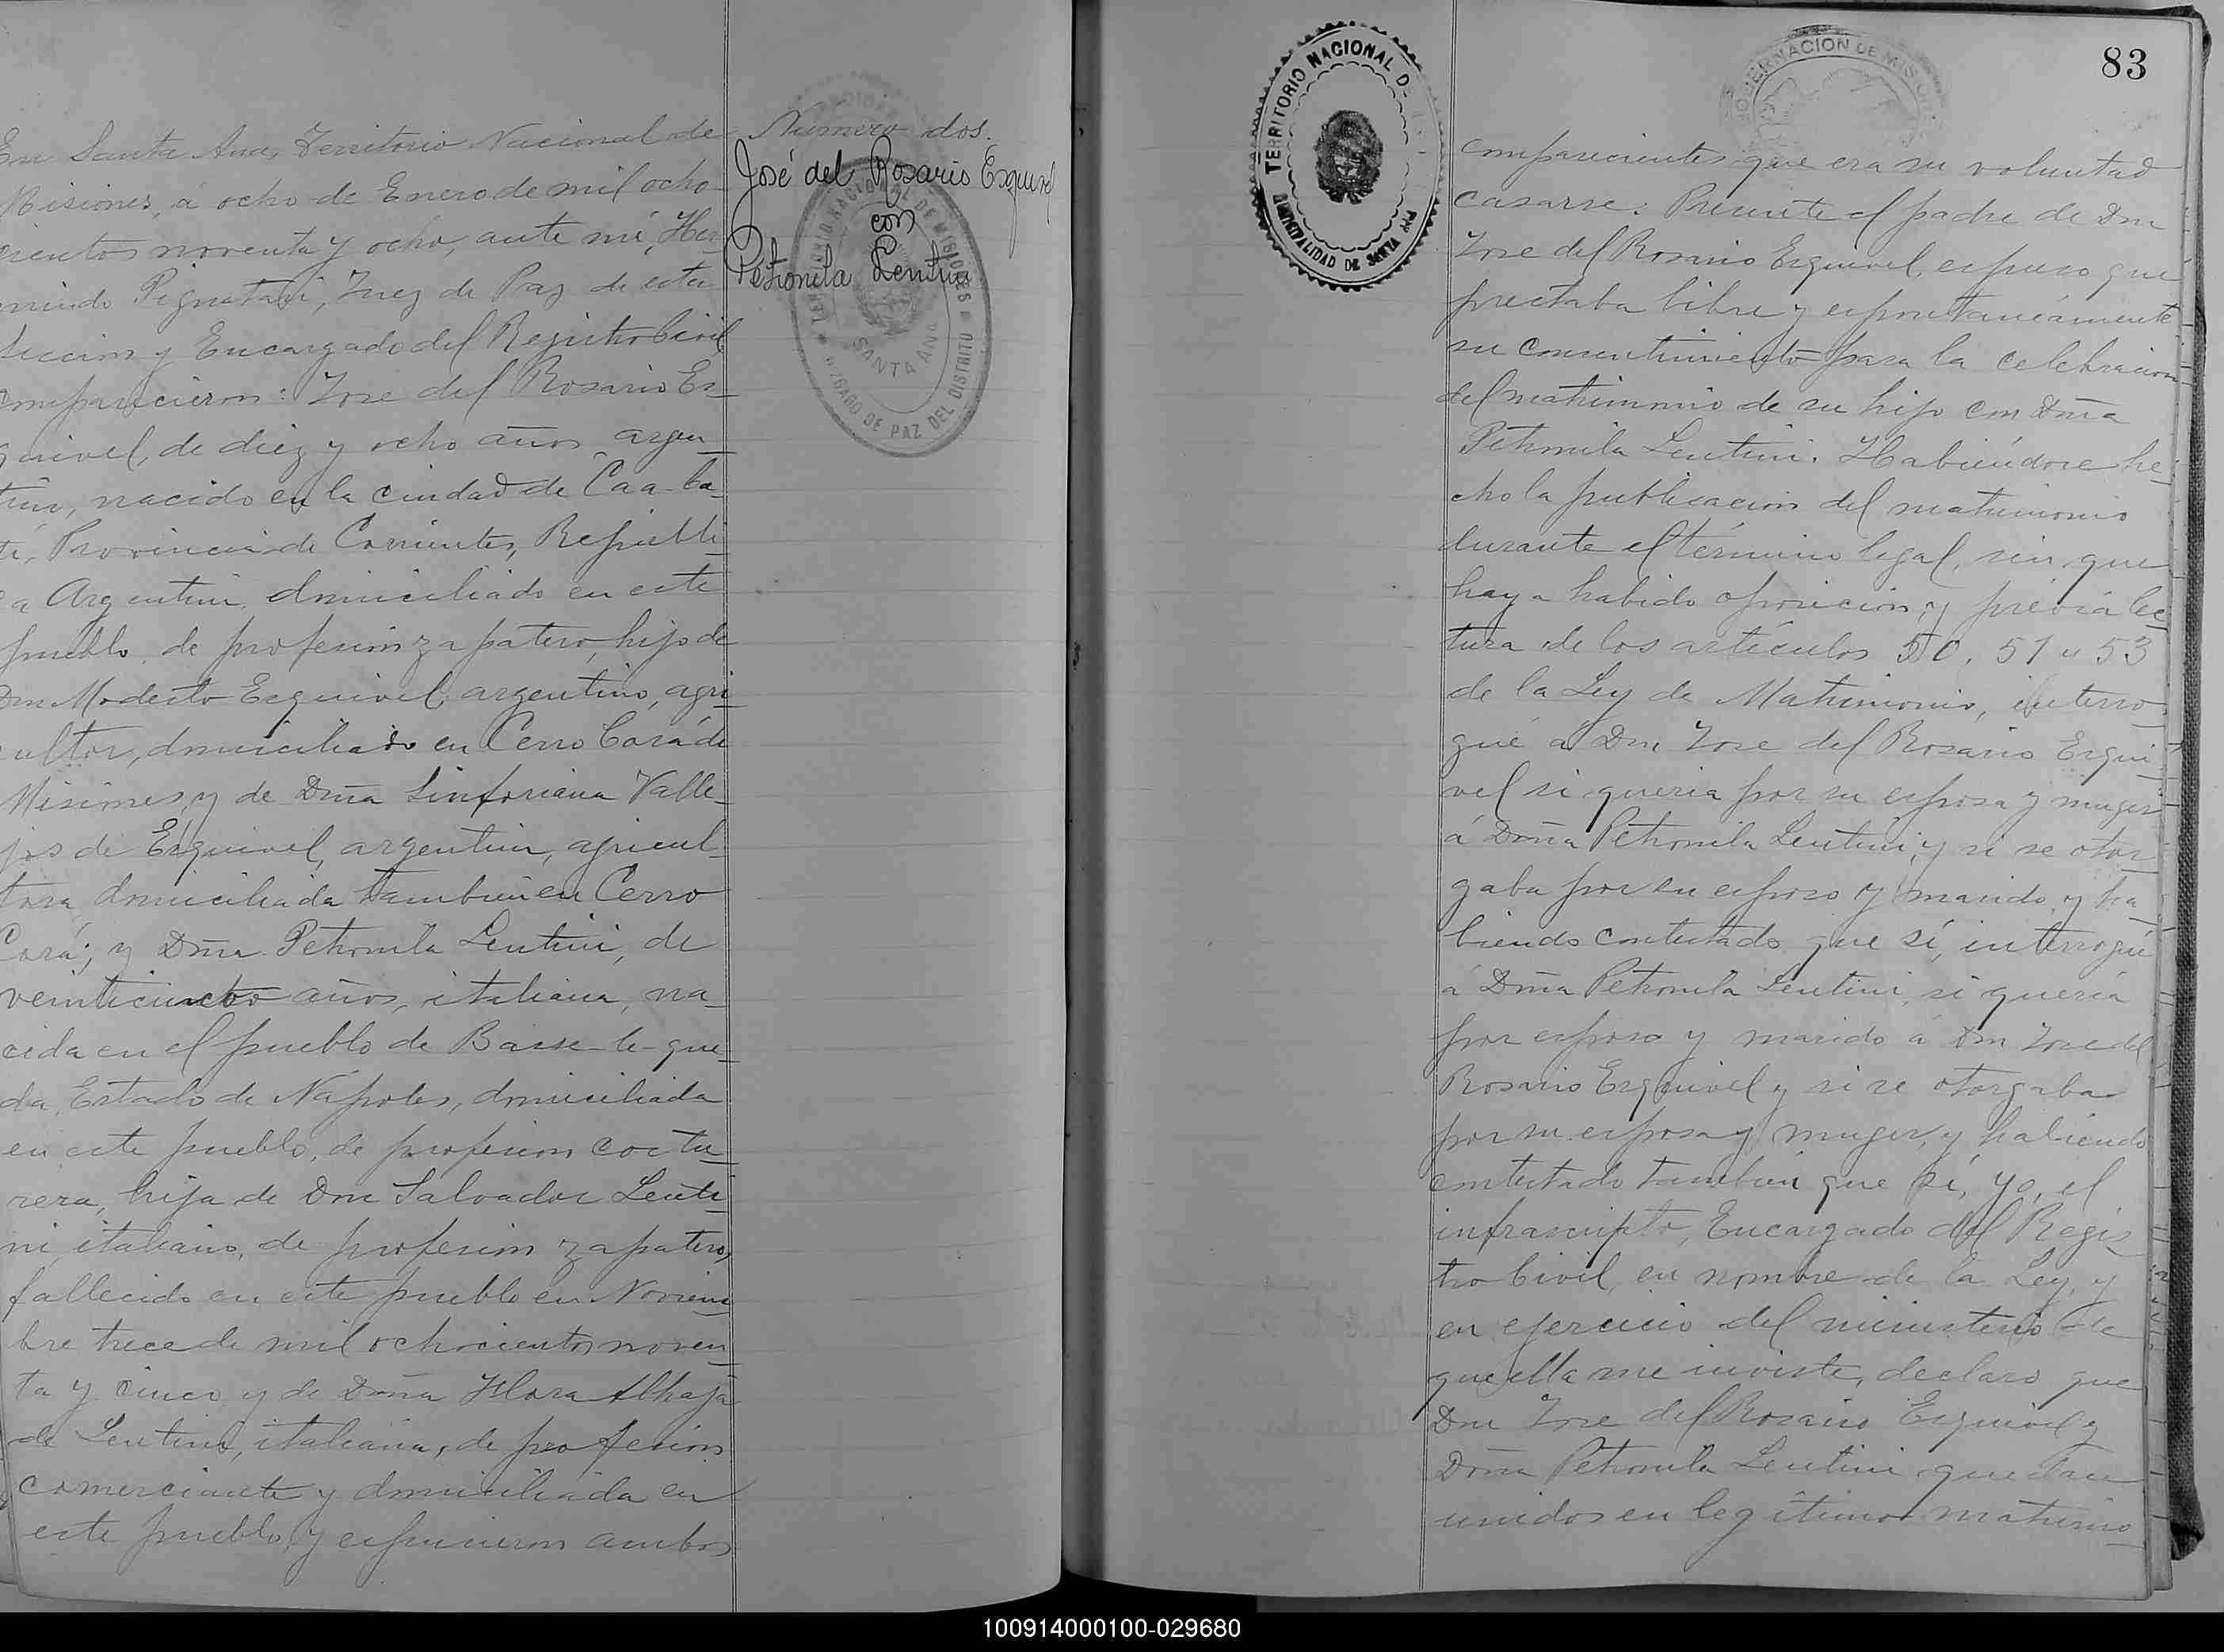 En Santa Ana, Territorio Nacional de
Misiones, á ocho de Enero de mil ocho
cientos noventa y ocho, ante mí, Her
minido Pignatari, Juez de Paz de esta
seccion y Encargado del Registro Civil
comparecieron: Jose del Rosario Es
quivel, de diez y ocho años argen
tino, nacido en la ciudad de Caa-Ca
ti, Provincia de Corrientes, Repúbli
ca Argentina, domiciliado en este
pueblo, de profesion zapatero, hijo de
Don Modesto Esquivel, argentino, agri
cultor, domiciliado en Cerro Corá de
Misiones, y de Dña Sinforiana Valle
jos de Esquivel, argentina, agricul
tora, domiciliada tambien en Cerro
Corá; y Dña Petronila Lentini, de
años, italiana, na
cida en el pueblo de Basse-le-que
da, Estado de Nápoles, domiciliada
en este pueblo, de profesion costu
rera, hija de Don Salvador Lenti
ni, italiano, de profesion zapatero,
fallecido en este pueblo en Noviem
bre trece de mil ochocientos noven
ta y cinco y de Doña Flora Alhaja
de Lentini, italiana, de profesion
comerciante y domiciliada en
este pueblo, y espusieron ambos
Número dos.
José del Rosario Esquivel
con
Petronila Lentini
TERRITORIO NACIONAL DE MISIONES
JUZGADO DE PAZ DEL DISTRITO
SANTA ANA
TERRITORIO NACIONAL D
MUNICIPALIDAD DE SANTA ANA
GOBERNACION DE MISIONES
83
comparecientes que era su voluntad
casarse: Presente el padre de Don
Jose del Rosario Esquivel, espuso que
prestaba libre y espontaneamente
su consentimiento para la celebracion
del matrimonio de su hijo con Dña
Petronila Lentini. Habiéndose he
cho la publicacion del matrimonio
durante el término legal, sin que
haya habido oposicion, y prévia lec
tura de los artículos 50, 51 y 53
de la Ley de Matrimonio, interro
gué á Don Jose del Rosario Esqui
vel si queria por su esposa y muger
á Doña Petronila Lentini, y si se otor
gaba por su esposo y marido, y ha
biendo contestado que sí, interrogué
á Dña Petronila Lentini, si queria
por esposo y marido á Don Jose del
Rosario Esquivel y si se otorgaba
por su esposa y muger, y habiendo
contestado tambien que sí, yo, el
infrascripto, Encargado del Regis
tro Civil, en nombre de la Ley, y
en ejercicio del ministerio de
que ella me inviste, declaro que
Don Jose del Rosario Esquivel y
Doña Petronila Lentini quedan
unidos en legítimo matrimo
100914000100-029680